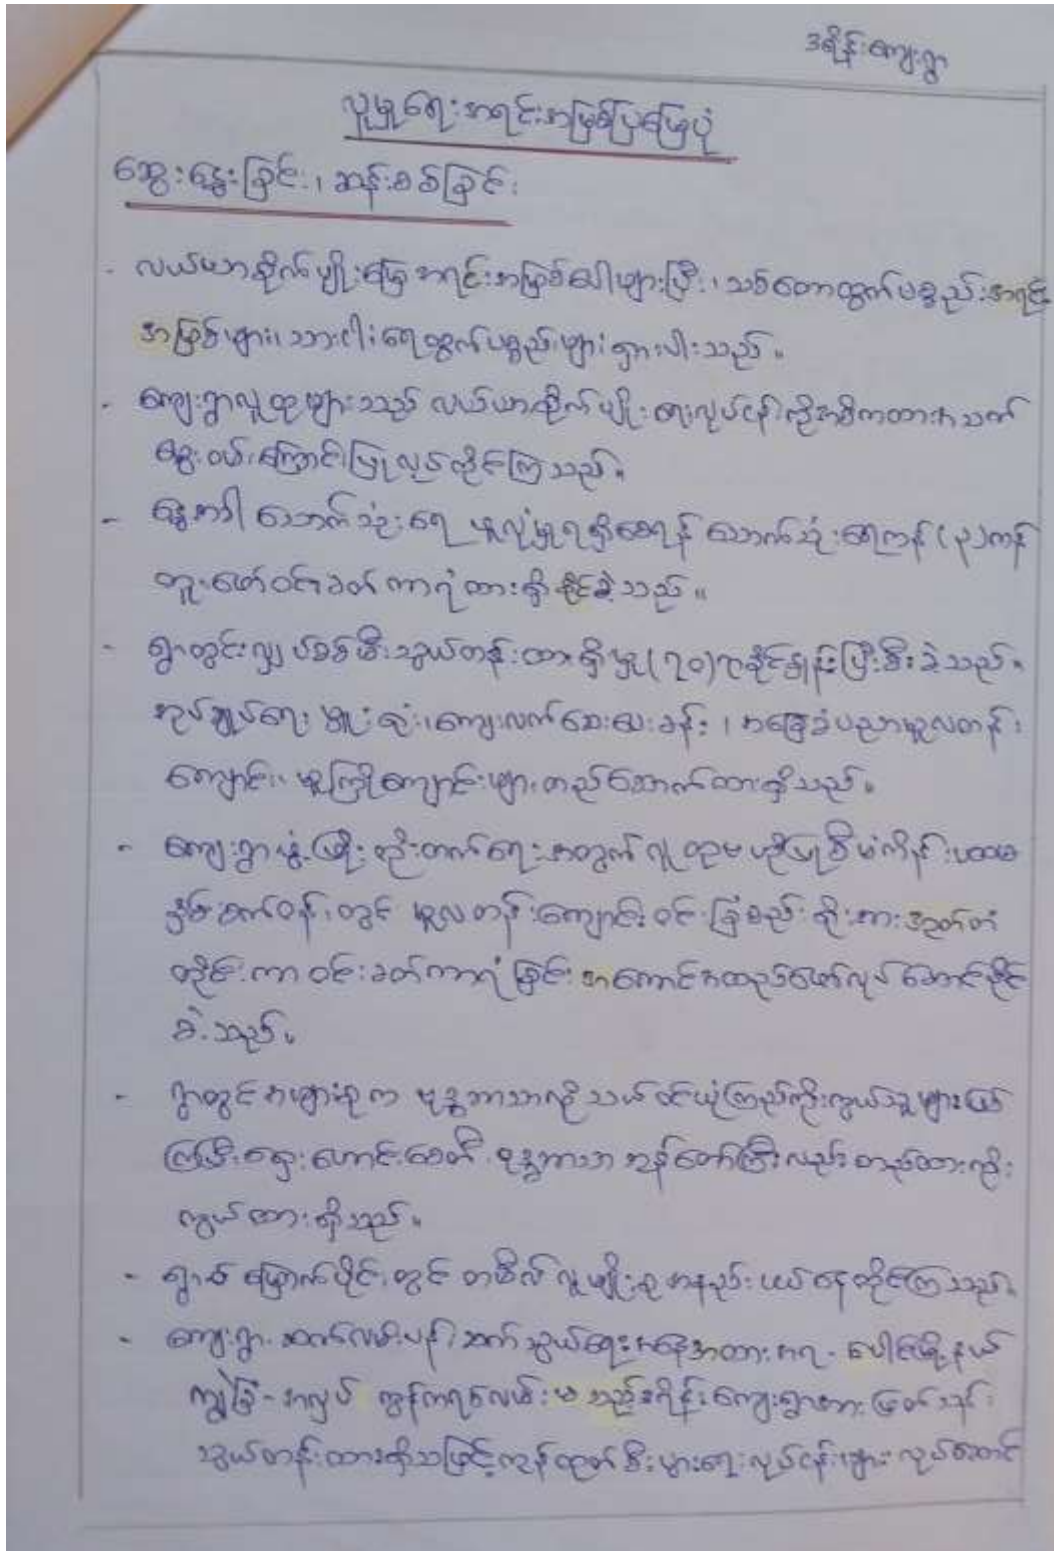 ဒရိန်းကျေးရွာ
လူမှုရေးအရင်းအမြစ်ပြမြေပုံ
ဆွေးနွေးခြင်း၊ ဆန်းစစ်ခြင်း
- လယ်ယာစိုက်ပျိုးမြေ အရင်းအမြစ်ပေါများပြီး၊ သစ်တောထွက်ပစ္စည်းအရင်း
အမြစ်များ၊ သားငါးရေထွက်ပစ္စည်းများ ရှားပါးသည်။
- ကျေးရွာလူထုများသည် လယ်ယာစိုက်ပျိုးရေးလုပ်ငန်းကိုအဓိကထားအသက်
မွေးဝမ်းကြောင်းပြုလုပ်ကိုင်ကြသည်။
- နွေအခါ သောက်သုံးရေ ဖူလုံမှုရရှိစေရန် သောက်သုံးရေကန် (၃)ကန်
တူးဖော်ဝင်းခတ်ကာရံထားရှိနိုင်ခဲ့သည်။
- ရွာတွင်းလျှပ်စစ်မီးသွယ်တန်းထားရှိမှု (၇၀)ရာခိုင်နှုန်းပြီးစီးခဲ့သည်။
အုပ်ချုပ်ရေးမှူးရုံး၊ ကျေးလက်ဆေးပေးခန်း၊ အခြေခံပညာမူလတန်း
ကျောင်း၊ မူကြိုကျောင်းများ တည်ဆောက်ထားရှိသည်။
- ကျေးရွာဖွံ့ဖြိုးတိုးတက်ရေးအတွက် လူထုဗဟိုပြုစီမံကိန်း ပထမ
နှစ်စက်ဝန်းတွင် မူလတန်းကျောင်းဝင်းခြံစည်းရိုးအား အုတ်တံ
တိုင်းကာ ဝင်းခတ်ကာရံခြင်း အကောင်အထည်ဖော်လုပ်ဆောင်နိုင်
ခဲ့သည်။
- ရွာတွင် အများစုက ဗုဒ္ဓဘာသာကို သက်ဝင်ယုံကြည်ကိုးကွယ်သူများဖြစ်
ကြပြီး ရှေးဟောင်းစေတီ၊ ဗုဒ္ဓဘာသာ ဘုန်းတော်ကြီးလည်း တည်ထားကိုး
ကွယ်ထားရှိသည်။
- ရွာ၏ မြောက်ပိုင်းတွင် တမီလ်လူမျိုးစု အနည်းငယ်နေထိုင်ကြသည်။
- ကျေးရွာ ဆက်လမ်းပန်းဆက်သွယ်ရေးအနေအထားအရ - ပေါင်မြို့နယ်
ကျွဲခြံ-အလှပ် ကွန်ကရစ်လမ်းမသည် ဒရိန်းကျေးရွာအား ဖြတ်သန်း
သွယ်တန်းထားရှိသဖြင့် ကုန်ထုတ်စီးပွားရေးလုပ်ငန်းများ လုပ်ဆောင်